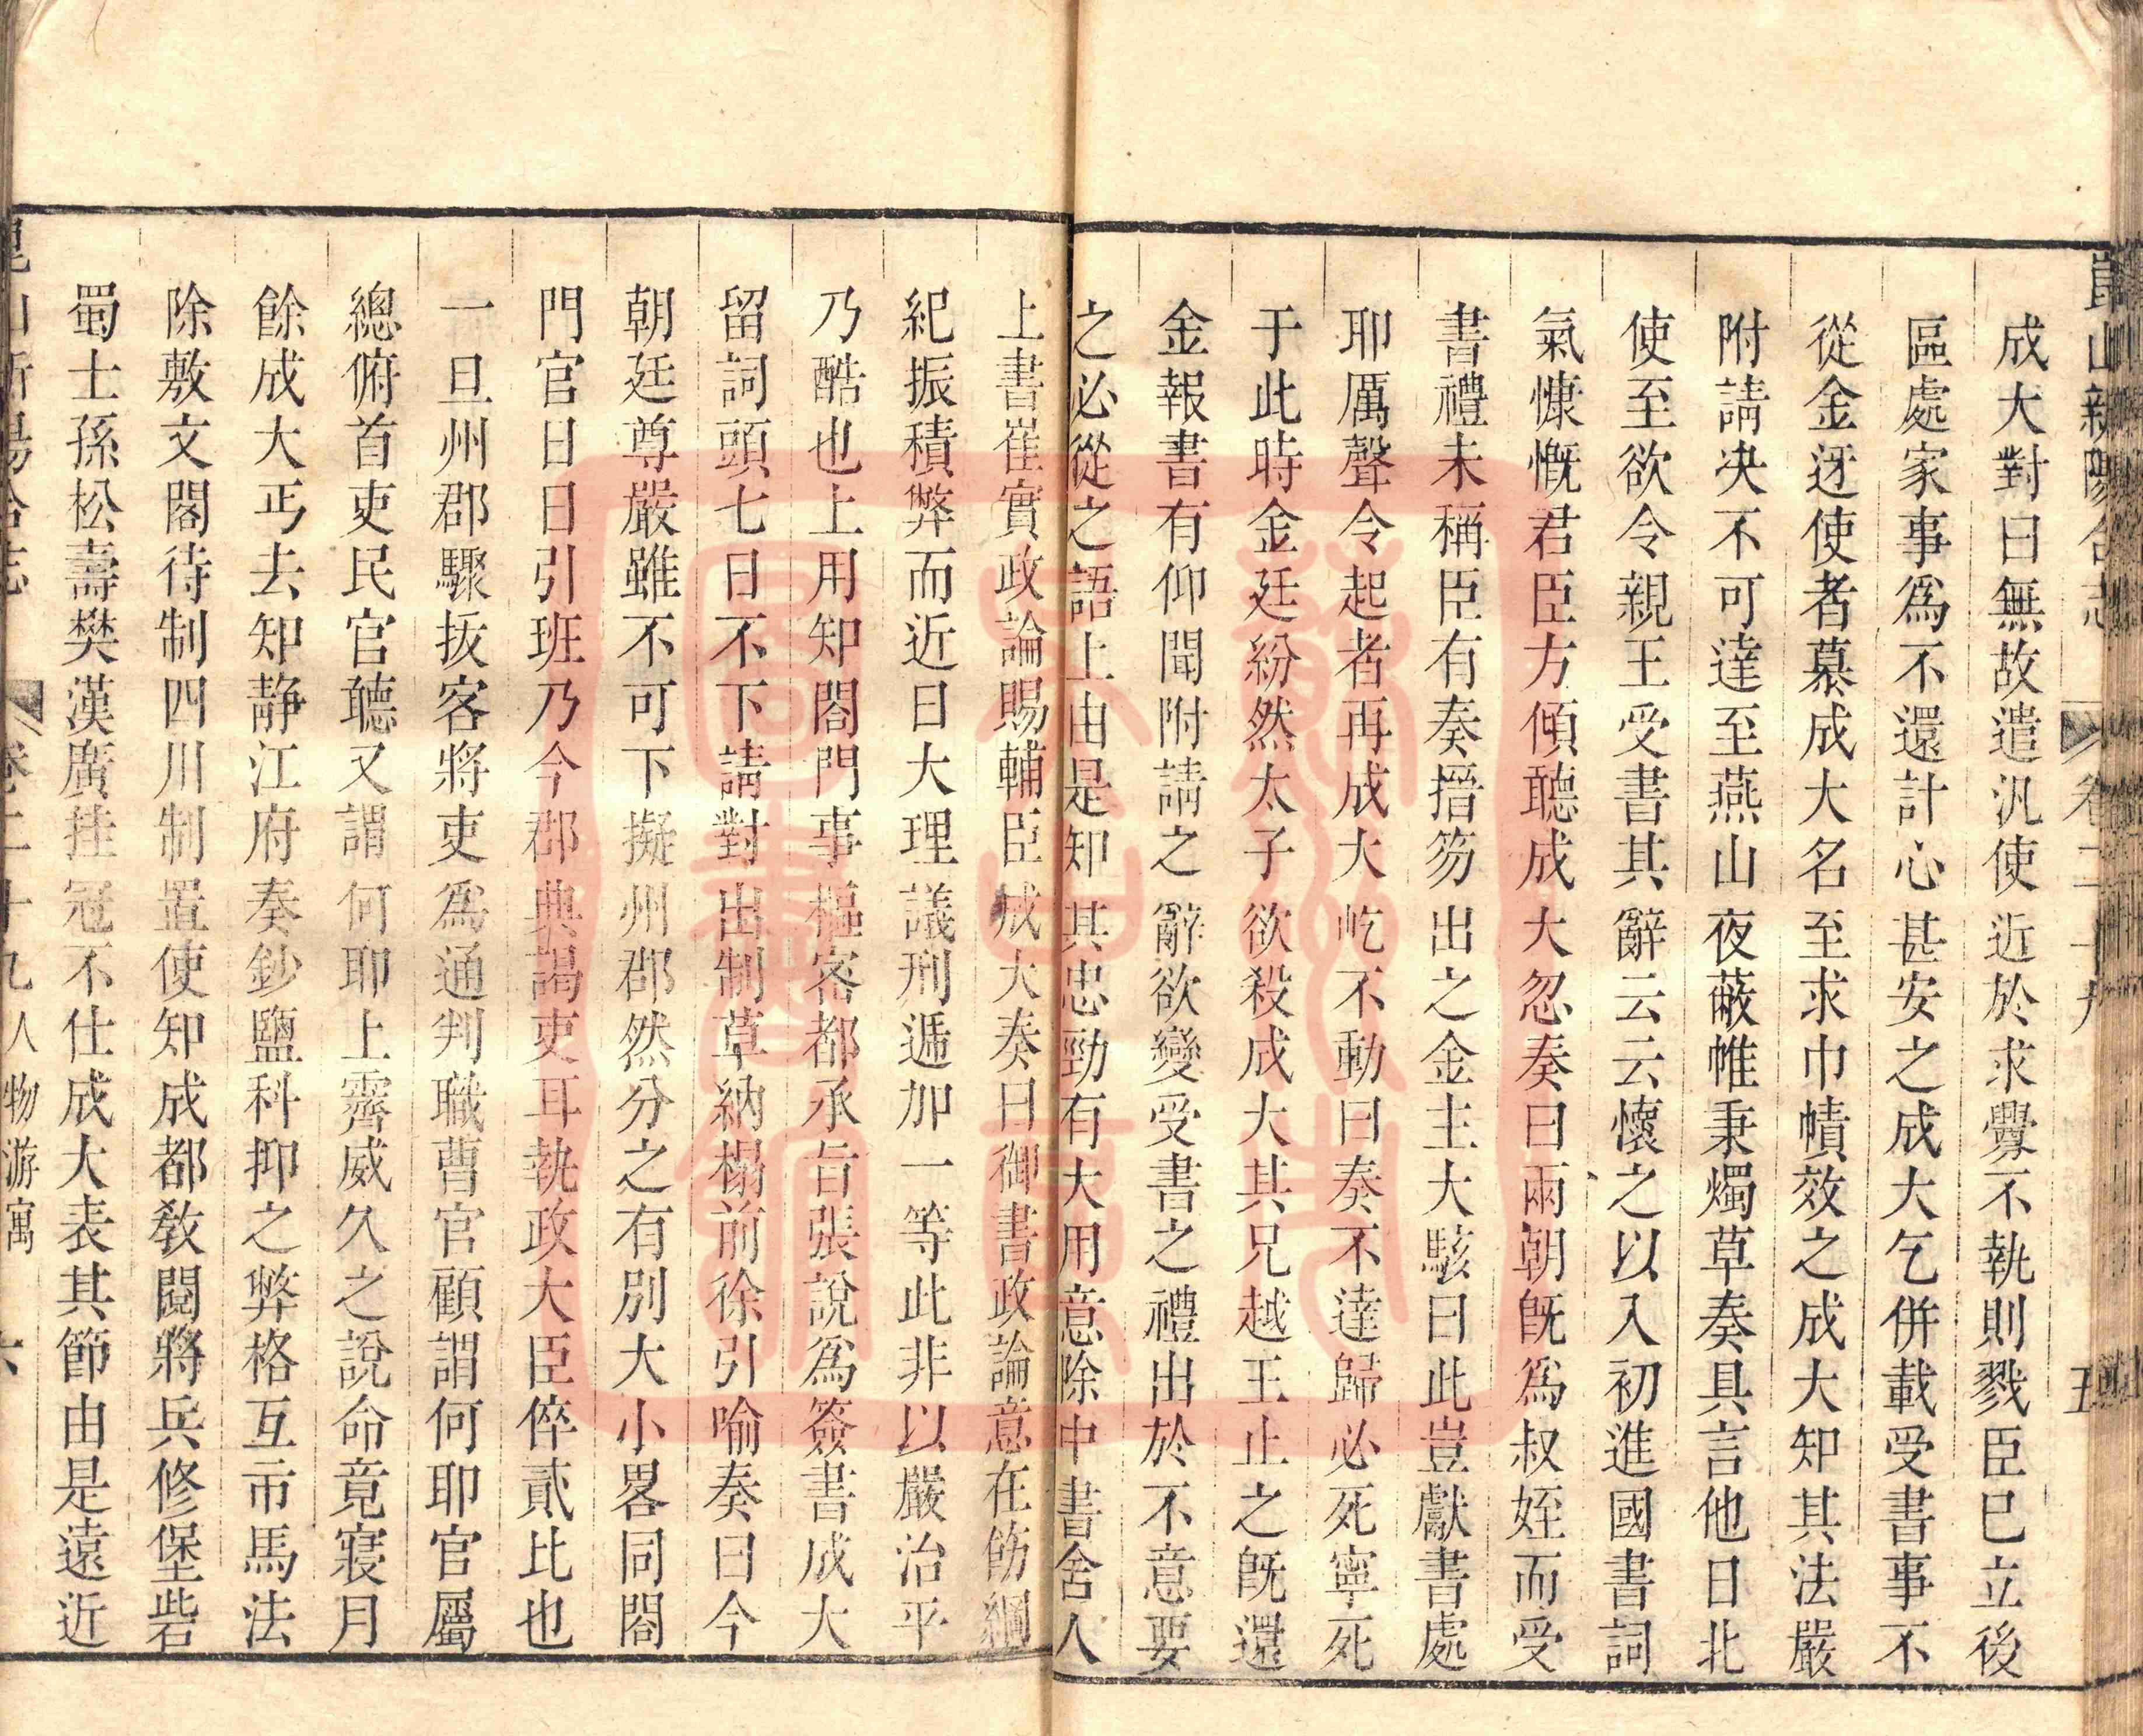 崑山新陽合志 卷二十九 五
成大對曰無故遣汎使近於求釁不執則戮臣巳立後
區處家事爲不還計心甚安之成大乞併載受書事不
從金迓使者慕成大名至求巾幘效之成大知其法嚴
附請决不可達至燕山夜蔽帷秉燭草奏具言他日北
使至欲令親王受書其辭云云懷之以入初進國書詞
氣慷慨君臣方傾聽成大忽奏曰兩朝旣爲叔姪而受
書禮未稱臣有奏搢笏出之金主大駭曰此豈獻書處
耶厲聲令起者再成大屹不動曰奏不達歸必死寧死
于此時金廷紛然太子欲殺成大其兄越王止之旣還
金報書有仰聞附請之辭欲變受書之禮出於不意要
之必從之語上由是知其忠勁有大用意除中書舍人
上書崔實政論賜輔臣成大奏曰御書政論意在飭綱
紀振積弊而近日大理議刑遞加一等此非以嚴治平
乃酷也上用知閤門事樞密都承旨張說爲簽書成大
留詞頭七日不下請對出制草納榻前徐引喻奏曰今
朝廷尊嚴雖不可下擬州郡然分之有別大小畧同閤
門官日日引班乃今郡典謁吏耳執政大臣倅貳比也
一旦州郡驟拔客將吏爲通判職曹官顧謂何耶官屬
總俯首吏民官聽又謂何耶上霽威久之說命竟寢月
餘成大丐去知静江府奏鈔鹽科抑之弊格互市馬法
除敷文閣待制四川制置使知成都敎閱將兵修堡砦
蜀士孫松壽樊漢廣挂冠不仕成大表其節由是遠近
崑山新陽合志 卷二十九 人物游寓 六